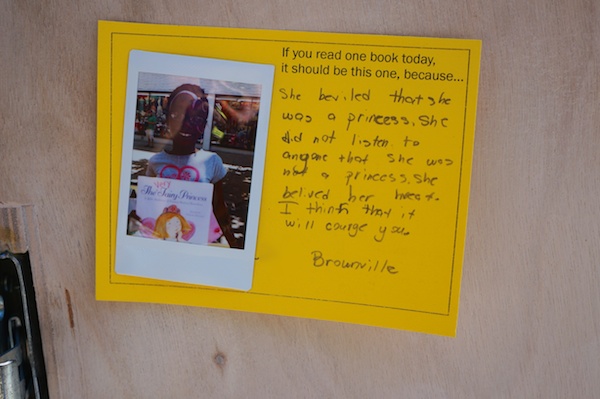 If you read one book today,
it should be this one, because...
She beviled that she
was a princess. She
did not listen to
anyone that she was
not a princess. She
belived her
I think that it
will courge you.
Brownville
VERY
The Fairy Princess